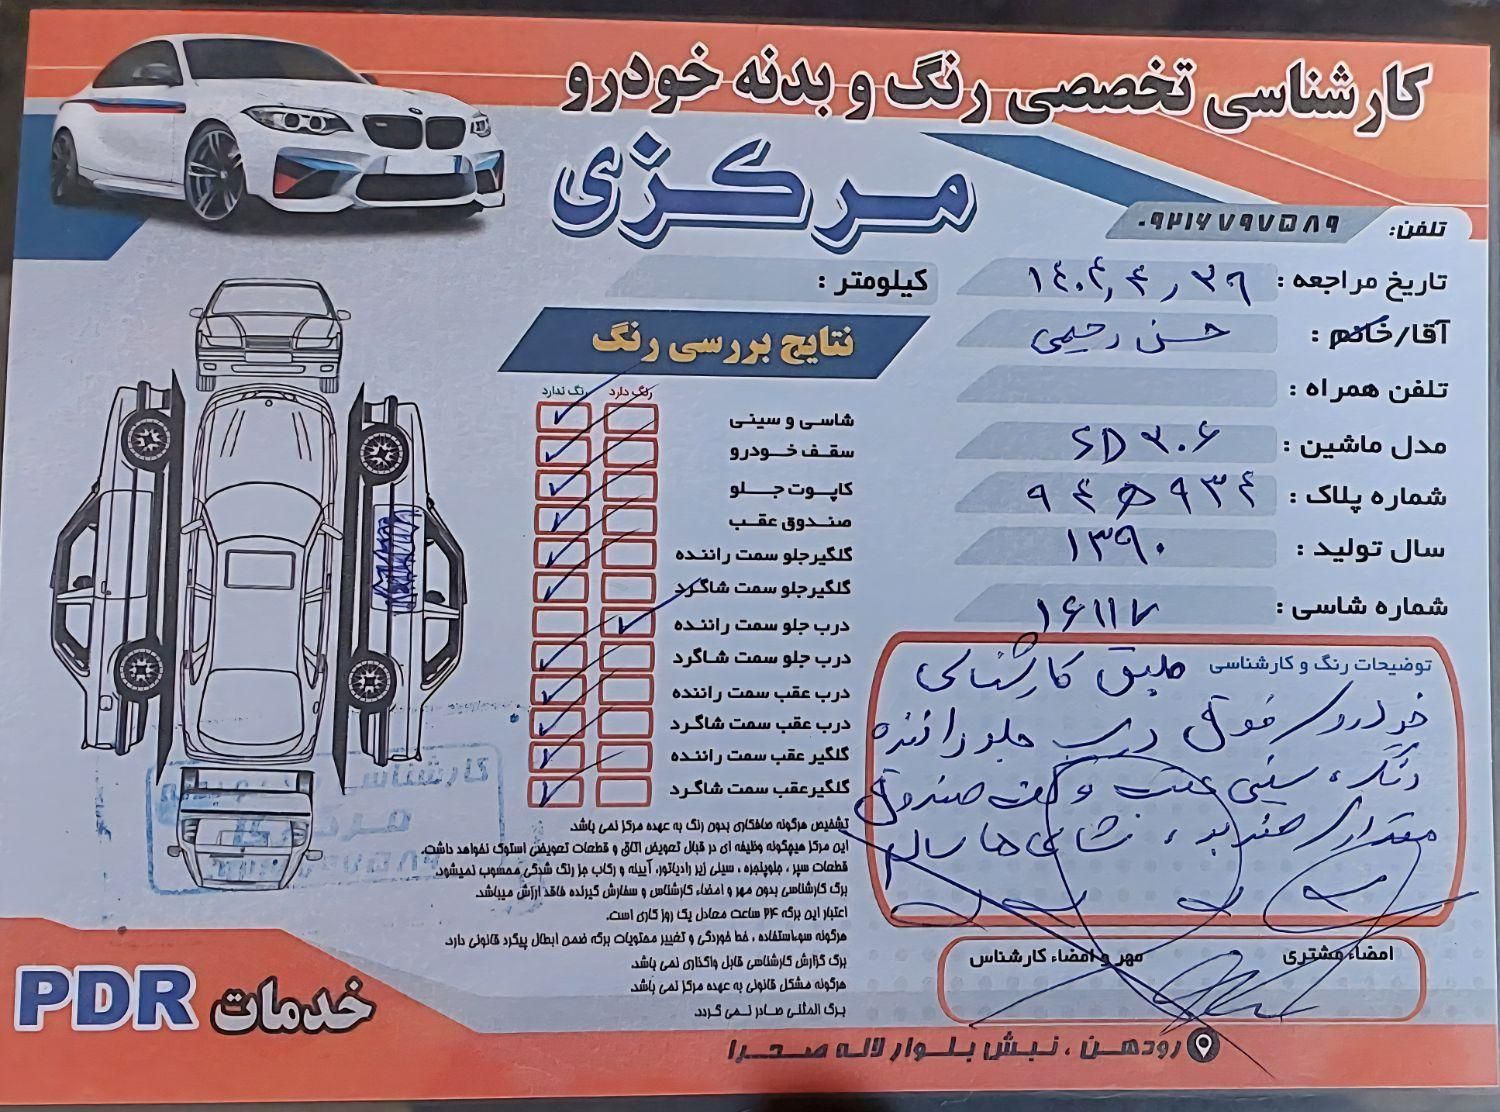 کارشناسی تخصصی رنگ و بدنه خودرو
مرکزی
تلفن: ۰۹۲۱۶۷۹۷۵۸۹
تاریخ مراجعه : ۱۴۰۴٫۴٫۲۹
آقا/خانم : حسن رحیمی
تلفن همراه :
مدل ماشین : SD ۲۰۶
شماره پلاک :
سال تولید : ۱۳۹۰
شماره شاسی : ۱۶۱۱۷
کیلومتر :
نتایج بررسی رنگ
رنگ دارد رنگ ندارد
شاسی و سینی
سقف خودرو
کاپوت جلو
صندوق عقب
گلگیرجلو سمت راننده
گلگیرجلو سمت شاگرد
درب جلو سمت راننده
درب جلو سمت شاگرد
درب عقب سمت راننده
درب عقب سمت شاگرد
گلگیر عقب سمت راننده
گلگیرعقب سمت شاگرد
توضیحات رنگ و کارشناسی طبق کارشناسی
خودرو فوق درب جلو راننده
رنگ، سینی عقب و کف صندوق
مقداری ضربه، شاسی ها سالم
تشخیص هرگونه صافکاری بدون رنگ به عهده مرکز نمی باشد.
این مرکز هیچگونه وظیفه ای در قبال تعویض اتاق و قطعات تعویضی استوک نخواهد داشت.
قطعات سپر ، جلوپنجره ، سینی زیر رادیاتور، آیینه و رکاب جز رنگ شدگی محسوب نمیشود.
برگ کارشناسی بدون مهر و امضاء کارشناس و سفارش گیرنده فاقد ارزش میباشد.
اعتبار این برگه ۲۴ ساعت معادل یک روز کاری است.
هرگونه سوءاستفاده ، خط خوردگی و تغییر محتویات برگه ضمن ابطال پیگرد قانونی دارد.
برگ گزارش کارشناسی قابل واگذاری نمی باشد.
هرگونه مشکل قانونی به عهده مرکز نمی باشد.
برگ المثنی صادر نمی گردد.
امضاء مشتری
مهر و امضاء کارشناس
کارشناسی
مرکزی
خدمات PDR
رودهن ، نبش بلوار لاله صحرا